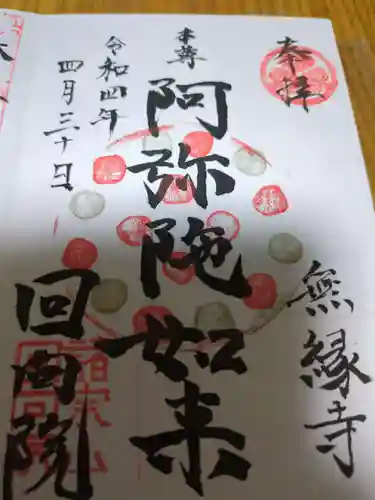 奉拝
無縁寺
本尊
阿弥陀如来
令和四年
四月三十日
回向院